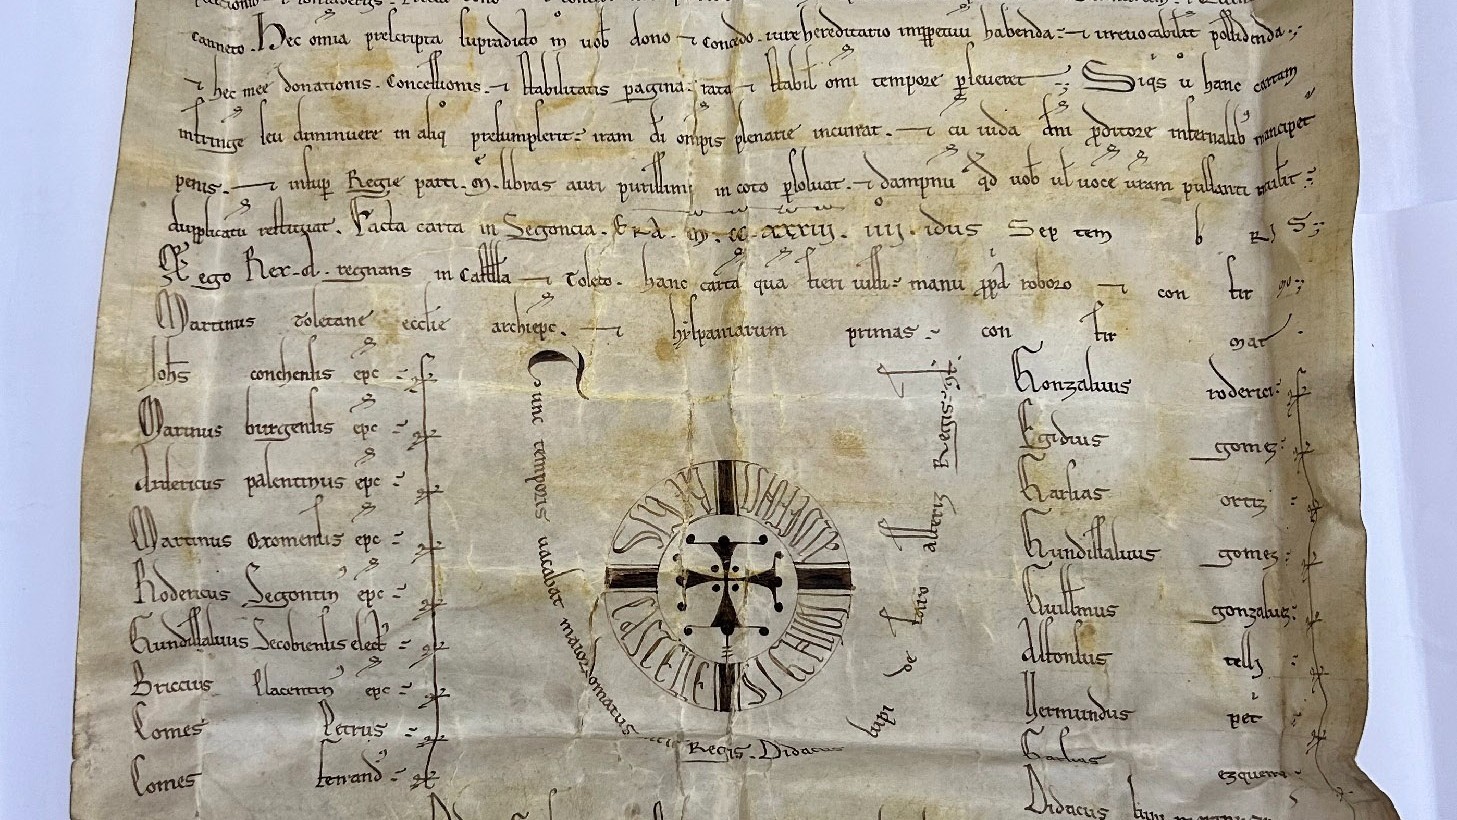 canneto. Hec omia prescripta supradicto m uob dono ⁊ concedo. iure hereditario imppetuu habenda ⁊ irreuocabilit possidenda.
⁊ hec mee donationis. Concessionis. ⁊ stabilitatis pagina. rata ⁊ stabil omi tempore pseueret. Siqs u hanc cartam
infringe seu diminuere in aliq presumpserit. iram di omps plenarie incurrat. ⁊ cu iuda dni pditore infernalib mancipet
penis. ⁊ insup Regie parti. M. libras auri purissimi in coto psoluat. ⁊ dampnu qd uob ul uoce uram pulsanti
dupplicatu restituat. Facta carta in Segoncia. Era. M. CC. XXXIII. IIII. idus Sep tem b R S
ego Rex. a. regnans in Castella ⁊ Toleto. hanc carta qua fieri iussi manu ppa roboro ⁊ con fir mo
Martinus Toletane ecclie archiepc. ⁊ hyspaniarum primas con fir mat.
Johs conchensis epc
Marinus burgensis epc
Ardericus palentinus epc
Martinus Oxomensis epc
Rodericus Segontin epc
Gundissaluus Secobiensis elect
Briccius Placentin epc
Comes Petrus
Comes ferrand
Tunc temporis uacabat maiordomatus Regis. Didacus lupi de faro alferiz Regis
SIGNUM
Gonzaluus roderici
Egidius gomez
Garsias ortiz
Gundissaluus gomez
Guillmus gonzaluz
Alfonsus telli
Uermundus pet
Garsias
Didacus